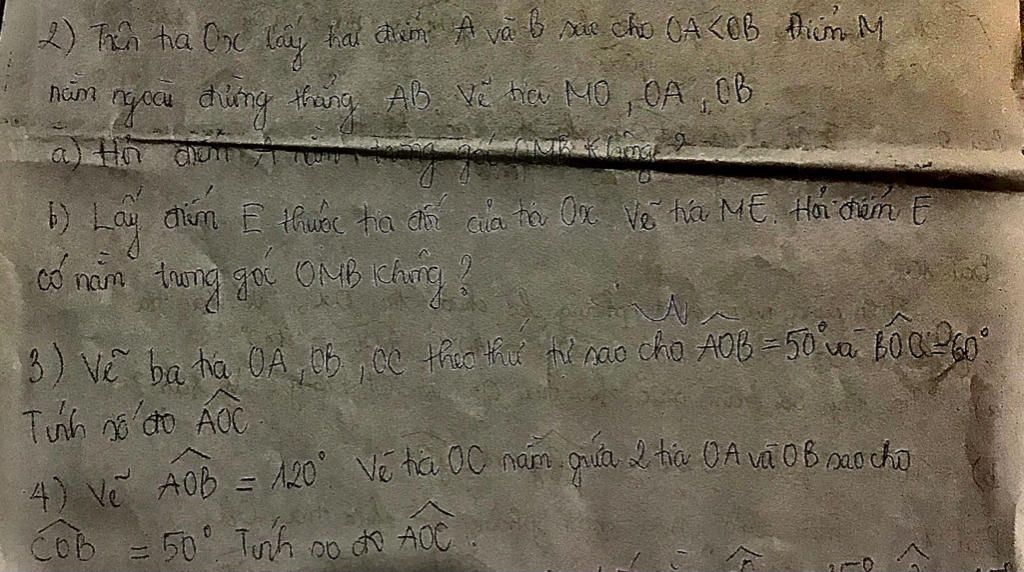 2) Trên tia Ox lấy hai điểm A và B sao cho OA<OB Điểm M
nằm ngoài đường thẳng AB. Vẽ tia MO, OA, OB
a) Hỏi điểm A nằm trong góc OMB không?
b) Lấy điểm E thuộc tia đối của tia Ox. Vẽ tia ME. Hỏi điểm E
có nằm trong góc OMB không?
3) Vẽ ba tia OA, OB, OC theo thứ tự sao cho AOB = 50° và BOC = 60°.
Tính số đo AOC.
4) Vẽ AOB = 120° Vẽ tia OC nằm giữa 2 tia OA và OB sao cho
COB = 50° Tính so đo AOC.